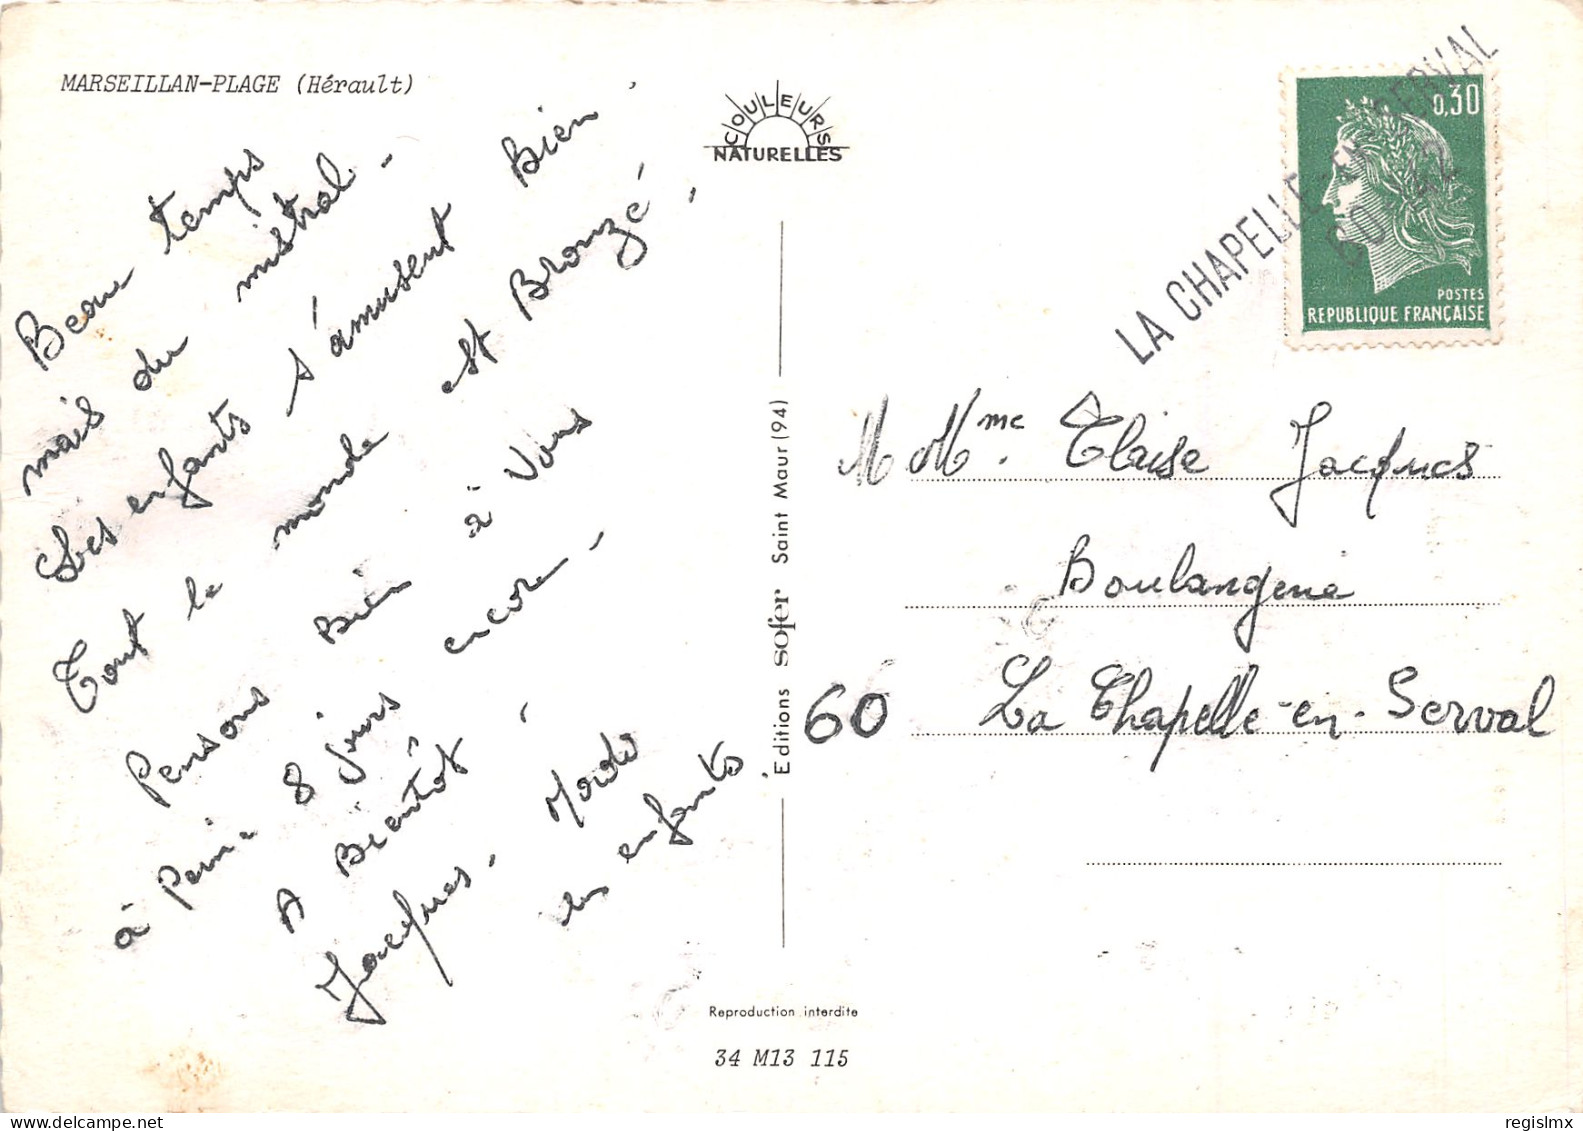 MARSEILLAN-PLAGE (Hérault)
Beau temps
mais du mistral -
Les enfants s'amusent Bien
Tout le monde est Bronzé,
Pensons Bien à Vous
à Peine 8 jours encore -
A Bientôt
Jacques,
les enfants
COULEURS
NATURELLES
Editions sofer Saint Maur (94)
Reproduction interdite
34 M13 115
LA CHAPELLE-EN-SERVAL
0,30
POSTES
REPUBLIQUE FRANÇAISE
M Mme. Jacques
Boulangerie
60 La Chapelle-en-Serval
www.delcampe.net
regislmx